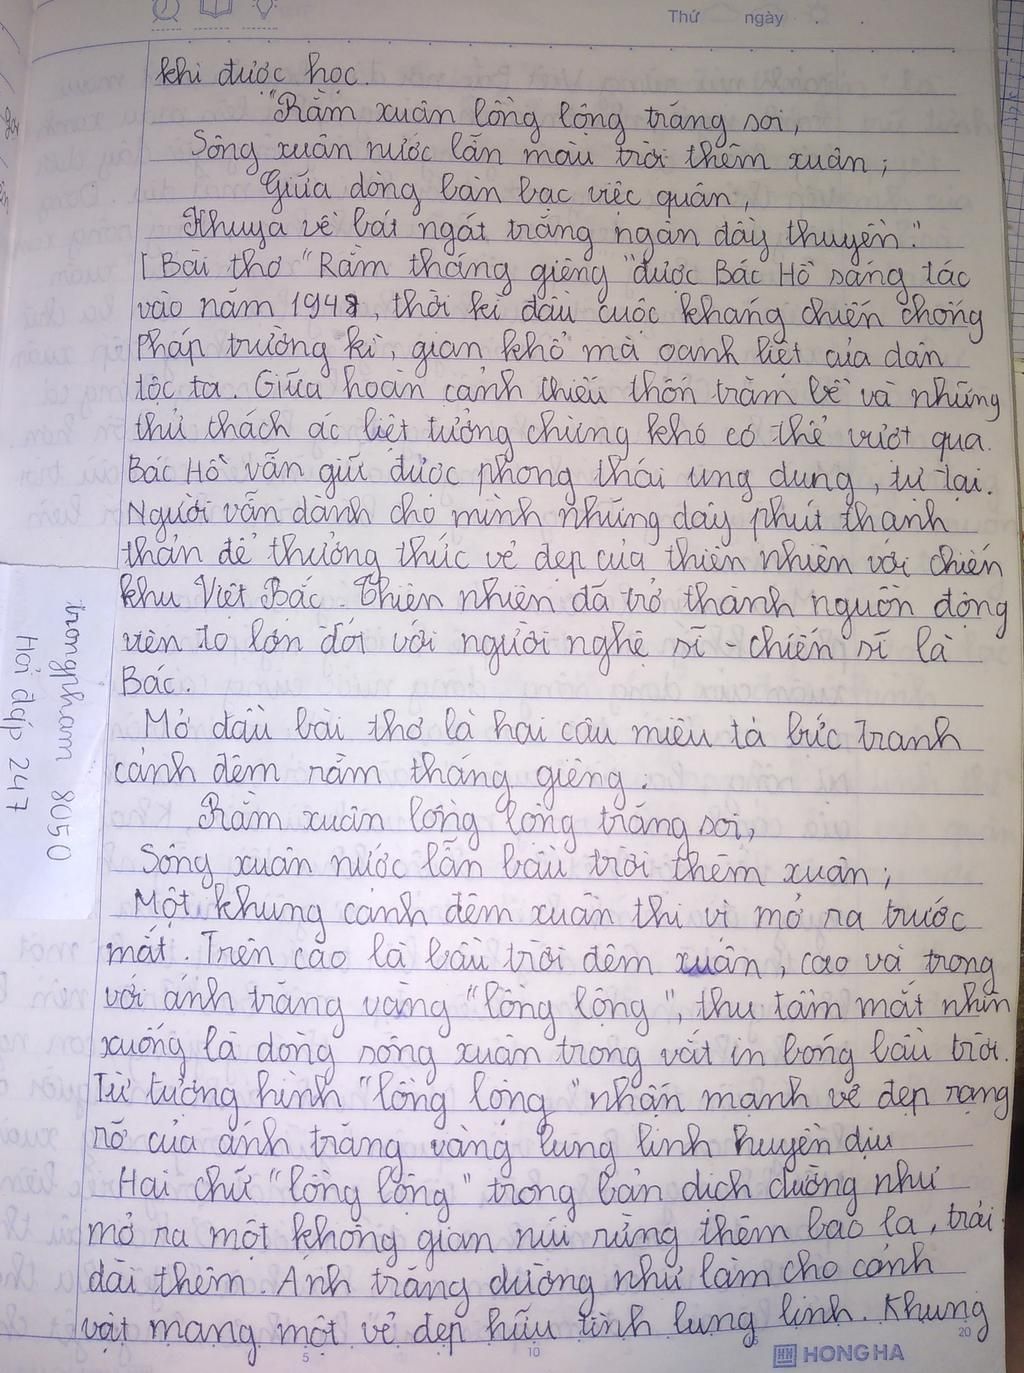 Thứ ngày
khi được học.
"Rằm xuân lồng lộng trăng soi,
Sông xuân nước lẫn màu trời thêm xuân;
Giữa dòng bàn bạc việc quân,
Khuya về bát ngát trăng ngân đầy thuyền."
[ Bài thơ "Rằm tháng giêng" được Bác Hồ sáng tác
vào năm 1948, thời kì đầu cuộc kháng chiến chống
Pháp trường kì, gian khổ mà oanh liệt của dân
tộc ta. Giữa hoàn cảnh thiếu thốn trăm bề và những
thử thách ác liệt tưởng chừng khó có thể vượt qua.
Bác Hồ vẫn giữ được phong thái ung dung, tự tại.
Người vẫn dành cho mình những dây phút thanh
thản để thưởng thức vẻ đẹp của thiên nhiên với chiến
khu Việt Bắc. Thiên nhiên đã trở thành nguồn động
viên to lớn đối với người nghệ sĩ - chiến sĩ là
Bác.
Mở đầu bài thơ là hai câu miêu tả bức tranh
cảnh đêm rằm tháng giêng:
Rằm xuân lồng lộng trăng soi,
Sông xuân nước lẫn bầu trời thêm xuân;
Một khung cảnh đêm xuân thi vị mở ra trước
mắt. Trên cao là bầu trời đêm xuân, cao và trong
với ánh trăng vàng "lồng lộng", thu tầm mắt nhìn
xuống là dòng sông xuân trong vắt in bóng bầu trời.
Từ tượng hình "lồng lộng" nhấn mạnh vẻ đẹp rạng
rỡ của ánh trăng vàng lung linh huyền dịu
Hai chữ "lồng lộng" trong bản dịch dường như
mở ra một không gian núi rừng thêm bao la, trải
dài thêm. Ánh trăng dường như làm cho cảnh
vật mang một vẻ đẹp hữu tình lung linh. Khung
truongpham 8050
Hỏi đáp 247
5 10 15 20
HONG HA